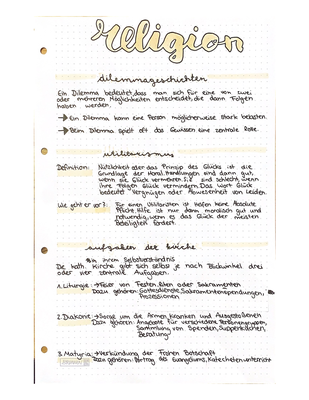 religion
dilemmageschichten
Ein Dilemma bedeutet, dass man sich für eine von zwei
oder mehreren Möglichkeiten entscheidet, die dann Folgen
haben werden.
→ Ein Dilemma kann eine Person möglicherweise stark belasten.
→ Beim Dilemma spielt oft das Gewissen eine zentrale Rolle.
utilitarismus
Definition: Nützlichkeit oder das Prinzip des Glücks ist die
Grundlage der Moral. Handlungen sind dann gut,
wenn sie Glück vermehren, sind schlecht, wenn
ihre Folgen Glück vermindern. Das Wort Glück
bedeutet Vergnügen oder Abwesenheit von Leiden.
Wie geht er vor?: Für einen Utilitaristen ist Helfen keine absolute
Pflicht. Hilfe ist nur dann moralisch gut und
notwendig, wenn es das Glück der meisten
Beteiligten fördert.
aufgaben der kirche
in ihrem Selbstverständnis
Die kath. Kirche gibt sich selbst je nach Blickwinkel drei
oder vier zentrale Aufgaben.
1. Liturgie → Feier von Festen, Riten oder Sakramenten
Dazu gehören: Gottesdienste, Sakramentenspendungen,
Prozessionen
2. Diakonie → Sorge um die Armen, Kranken und Ausgestoßenen
Dazu gehören: Angebote für verschiedene Personengruppen,
Sammlung von Spenden, Suppenküchen,
Beratung
3. Martyria → Verkündung der Frohen Botschaft
Dazu gehören: Vortrag des Evangeliums, Katechetenunterricht